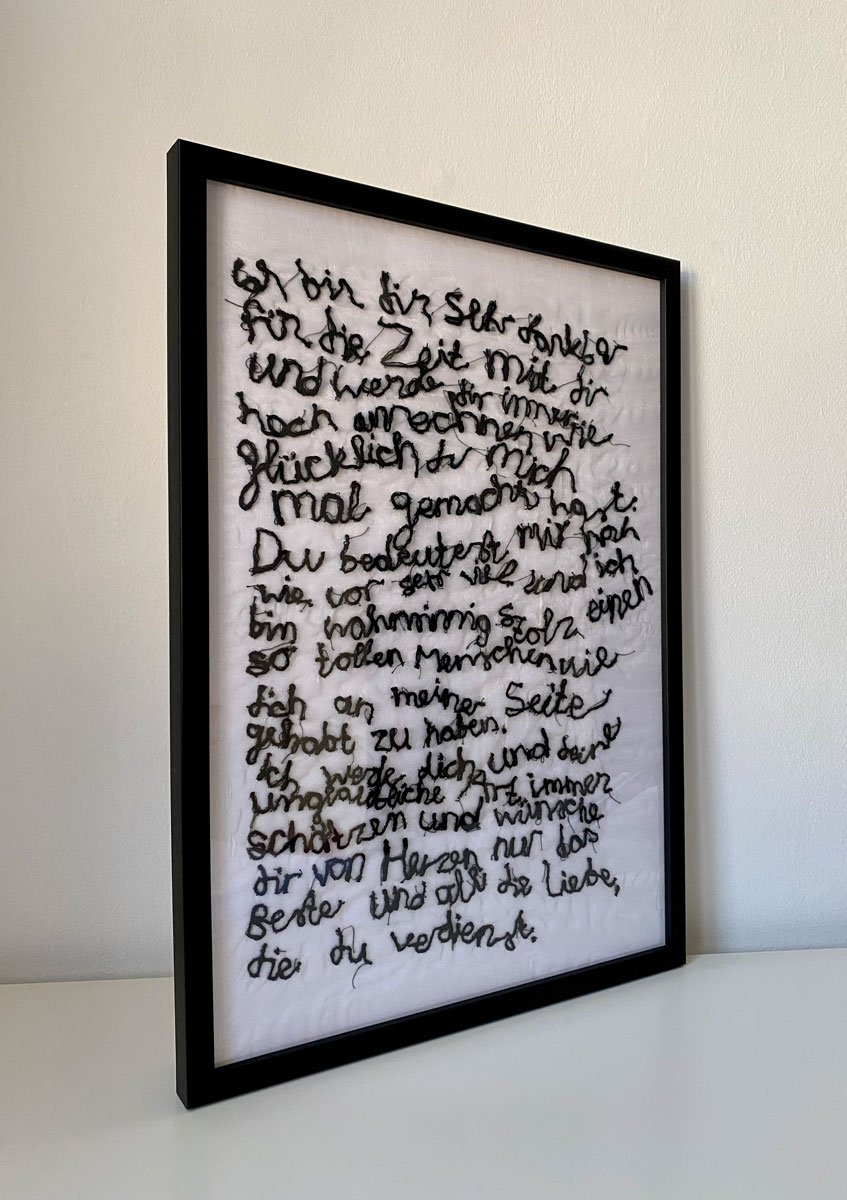 Ich bin dir sehr dankbar
für die Zeit mit dir
und werde dir immer
hoch anrechnen wie
glücklich du mich
mal gemacht hast.
Du bedeutest mir nach
wie vor sehr viel und ich
bin wahnsinnig stolz einen
so tollen Menschen wie
dich an meiner Seite
gehabt zu haben.
Ich werde dich und deine
unglaubliche Art immer
schätzen und wünsche
dir von Herzen nur das
Beste und all die Liebe,
die du verdienst.